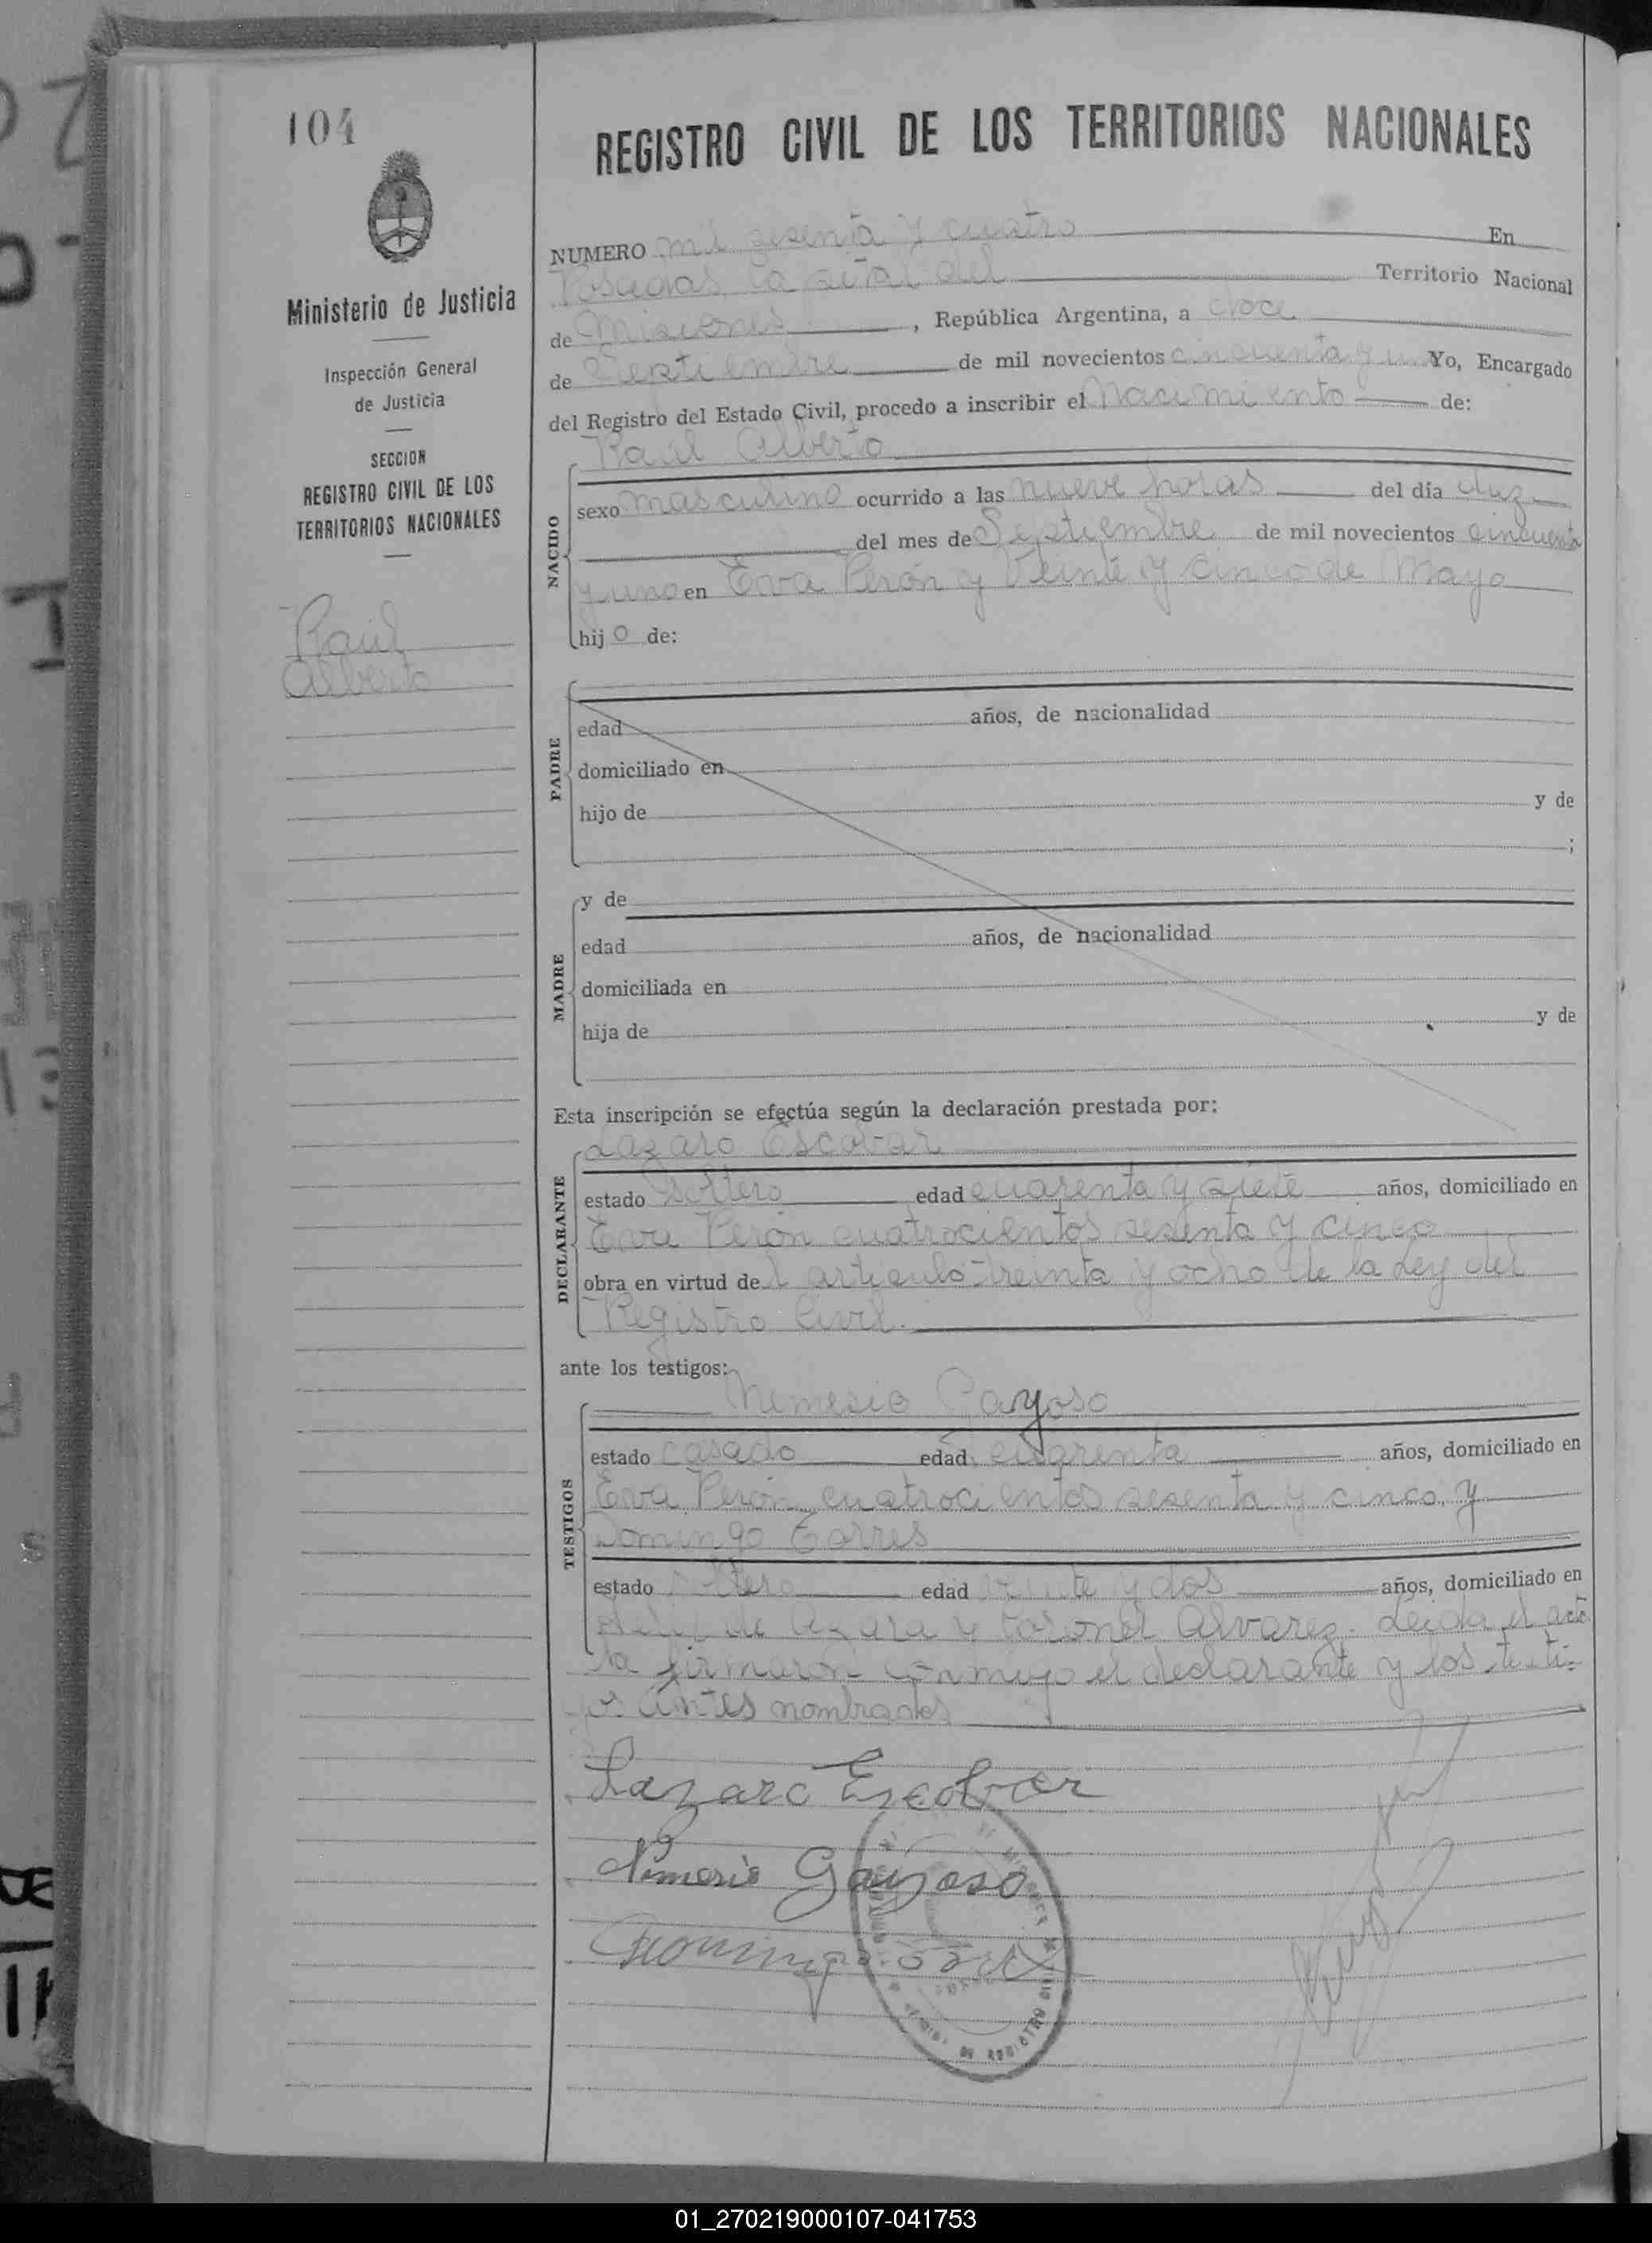 104
Ministerio de Justicia
Inspección General
de Justicia
SECCION
REGISTRO CIVIL DE LOS
TERRITORIOS NACIONALES
Raúl
Alberto
REGISTRO CIVIL DE LOS TERRITORIOS NACIONALES
NUMERO mil sesenta y cuatro En
Posadas Capital del Territorio Nacional
de Misiones, República Argentina, a doce
de Septiembre de mil novecientos cincuenta y uno Yo, Encargado
del Registro del Estado Civil, procedo a inscribir el Nacimiento de:
NACIDO
Raúl Alberto
sexo masculino ocurrido a las nueve horas del día diez
del mes de Septiembre de mil novecientos cincuenta
y uno en Eva Perón y Veinte y cinco de Mayo
hijo de:
PADRE
edad años, de nacionalidad
domiciliado en
hijo de y de
;
MADRE
y de
edad años, de nacionalidad
domiciliada en
hija de y de
Esta inscripción se efectúa según la declaración prestada por:
DECLARANTE
Lazaro Escobar
estado soltero edad cuarenta y siete años, domiciliado en
Eva Perón cuatrocientos sesenta y cinco
obra en virtud del artículo treinta y ocho de la Ley del
Registro Civil.
ante los testigos:
TESTIGOS
Nemesio Gayoso
estado casado edad cuarenta años, domiciliado en
Eva Perón cuatrocientos sesenta y cinco, y
Domingo Torres
estado soltero edad veinte y dos años, domiciliado en
de Azara y Coronel Alvarez. Leída el acta
la firmaron conmigo el declarante y los testi-
gos antes nombrados
Lazaro Escobar
Nemesio Gayoso
Domingo
REGISTRO
01_270219000107-041753